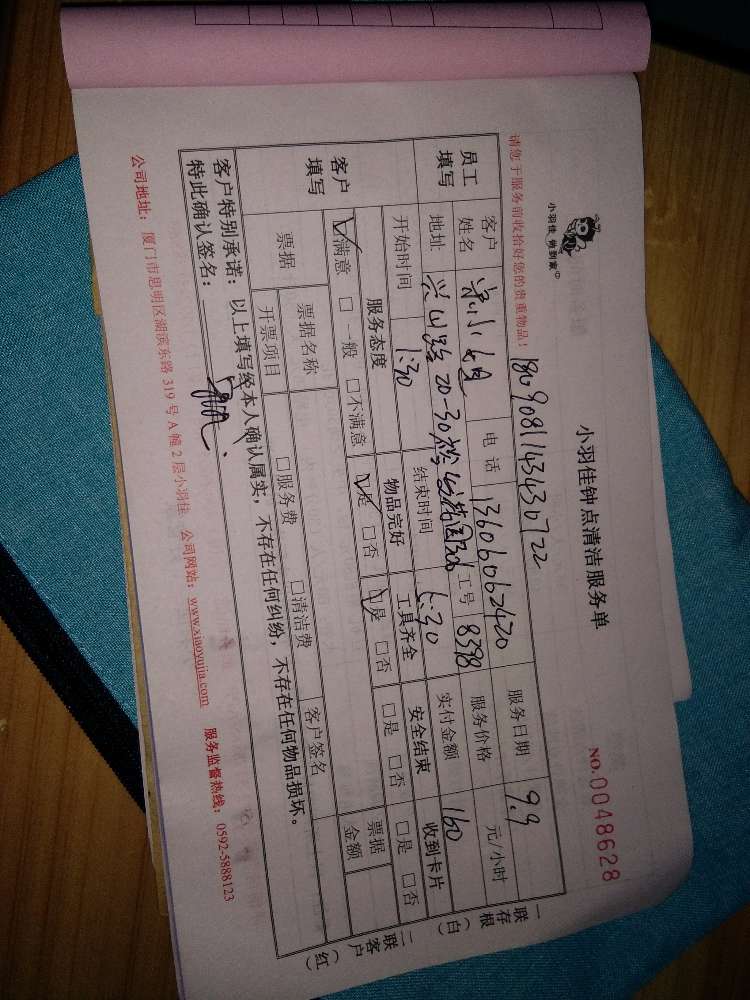 小羽佳钟点清洁服务单
NO.0048628
小羽佳 做到家
请您于服务前收拾好您的贵重物品！
1809081143430722
员工填写 客户姓名 小姐 电话 13606062420 服务日期 9.9
地址 兴山路 20-30 工号 8398 服务价格 元/小时
开始时间 1:30 结束时间 5:30 实付金额 160
客户填写 服务态度 物品完好 工具齐全 安全结束 收到卡片
☑满意 □一般 □不满意 ☑是 □否 ☑是 □否 □是 □否 □是 □否
票据 票据名称 □服务费 □清洁费 客户签名 票据金额
开票项目
客户特别承诺：以上填写经本人确认属实，不存在任何纠纷，不存在任何物品损坏。
特此确认签名：
一联存根（白）
二联客户（红）
公司地址：厦门市思明区湖滨东路 319 号 A 幢 2 层小羽佳 公司网站：www.xiaoyujia.com 服务监督热线：0592-5888123